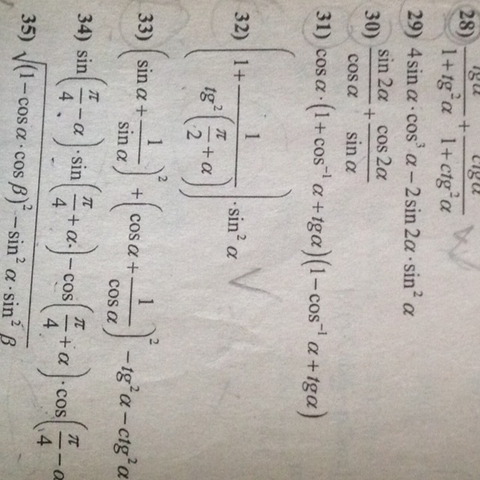 28) tgα/(1+tg²α) + ctgα/(1+ctg²α)
29) 4 sin α · cos³ α − 2 sin 2α · sin² α
30) sin 2α/cos α + cos 2α/sin α
31) cos α · (1+cos⁻¹ α + tgα)(1−cos⁻¹ α + tgα)
32) (1+ 1/tg²(π/2 + α)) · sin² α
33) (sin α + 1/sin α)² + (cos α + 1/cos α)² − tg²α − ctg²α
34) sin(π/4 − α) · sin(π/4 + α) − cos(π/4 + α) · cos(π/4 − α
35) √((1−cos α · cos β)² − sin² α · sin² β